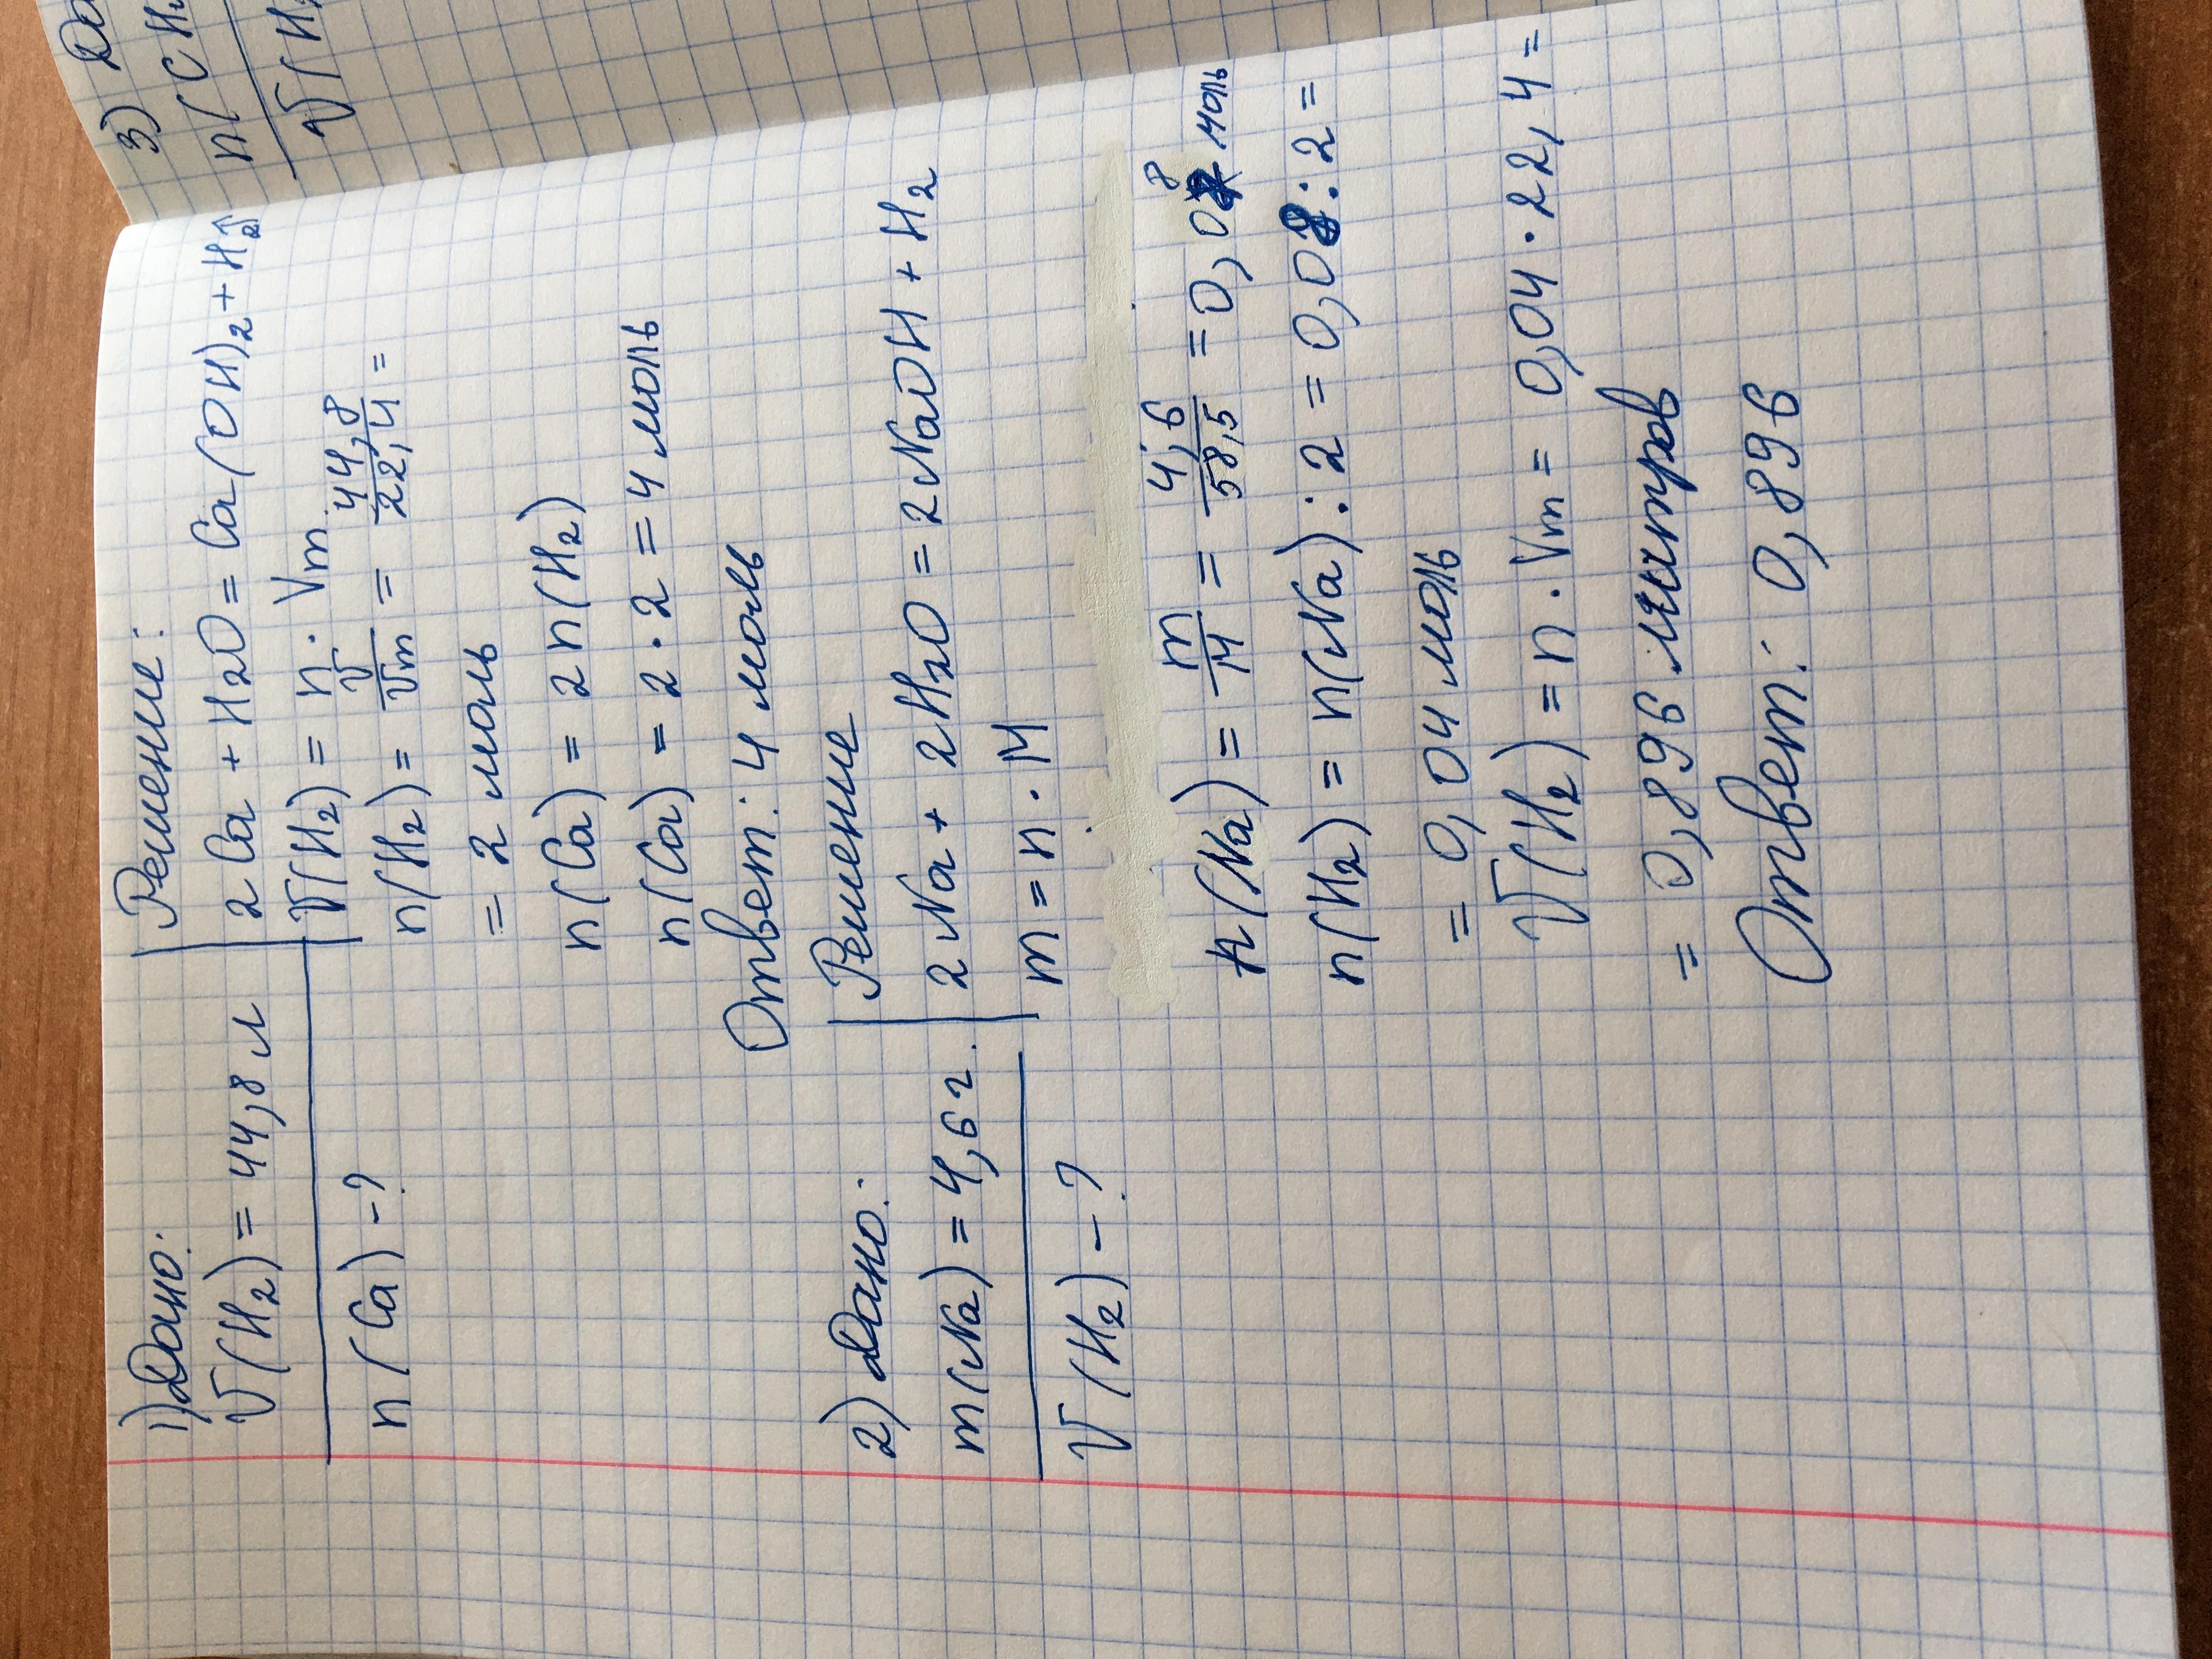 1) Дано:
V(H2) = 44,8 л
n(Ca) - ?
Решение:
2Ca + H2O = Ca(OH)2 + H2↑
V(H2) = n · Vm
n(H2) = V/Vm = 44,8/22,4 =
= 2 моль
n(Ca) = 2n(H2)
n(Ca) = 2 · 2 = 4 моль
Ответ: 4 моль
2) Дано:
m(Na) = 4,6 г.
V(H2) - ?
Решение
2Na + 2H2O = 2NaOH + H2
m = n · M
n(Na) = m/M = 4,6/58,5 = 0,08 моль
n(H2) = n(Na) : 2 = 0,08 : 2 =
= 0,04 моль
V(H2) = n · Vm = 0,04 · 22,4 =
= 0,896 литров
Ответ: 0,896
3)
n(
V(H